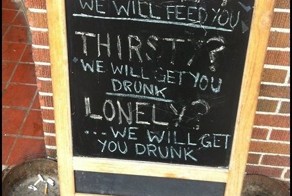 WE WILL FEED YOU
THIRSTY?
WE WILL GET YOU
DRUNK
LONELY?
...WE WILL GET
YOU DRUNK